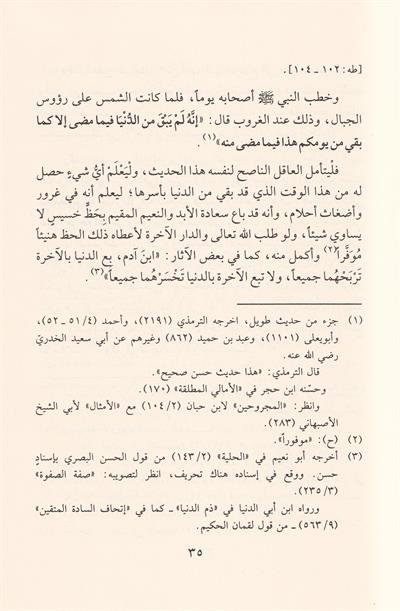 [طه: ١٠٢ ـ ١٠٤].
وخطب النبي ﷺ أصحابه يوماً، فلما كانت الشمس على رؤوس
الجبال، وذلك عند الغروب قال: «إِنَّهُ لَمْ يَبْقَ من الدُّنْيَا فيما مضى إلا كما
بقي من يومكم هذا فيما مضى منه»(١).
فلْيتأمل العاقل الناصح لنفسه هذا الحديث، ولْيَعْلَم أيُّ شيءٍ حصل
له من هذا الوقت الذي قد بقي من الدنيا بأسرها؛ ليعلم أنه في غرور
وأضغاث أحلام، وأنه قد باع سعادة الأبد والنعيم المقيم بِحَظٍّ خسيسٍ لا
يساوي شيئاً، ولو طلب الله تعالى والدار الآخرة لأعطاه ذلك الحظ هنيئاً
مُوَفَّراً(٢) وأكمل منه، كما في بعض الآثار: «ابنَ آدم، بع الدنيا بالآخرة
تَرْبَحْهُما جميعاً، ولا تبع الآخرة بالدنيا تَخْسَرْهُما جميعاً»(٣).
(١) جزء من حديث طويل، اخرجه الترمذي (٢١٩١)، وأحمد (٥١/٤ ـ ٥٢)،
وأبويعلى (١١٠١)، وعبد بن حميد (٨٦٢) وغيرهم عن أبي سعيد الخدريّ
رضي الله عنه.
قال الترمذي: «هذا حديث حسن صحيح».
وحسّنه ابن حجر في «الأمالي المطلقة» (١٧٠).
وانظر: «المجروحين» لابن حبان (١٠٤/٢) مع «الأمثال» لأبي الشيخ
الأصبهاني (٢٨٣).
(٢) (ح): «موفوراً».
(٣) أخرجه أبو نعيم في «الحلية» (١٤٣/٢) من قول الحسن البصري بإسنادٍ
حسن. ووقع في إسناده هناك تحريف، انظر لتصويبه: «صفة الصفوة»
(٢٣٥/٣).
ورواه ابن أبي الدنيا في «ذم الدنيا» ـ كما في «إتحاف السادة المتقين»
(٥٦٣/٩) ـ من قول لقمان الحكيم.
٣٥